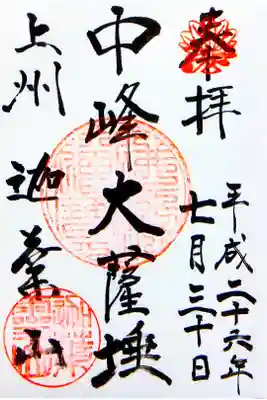 奉拝
平成二十六年
七月三十日
中峰大薩埵
上州
迦葉山